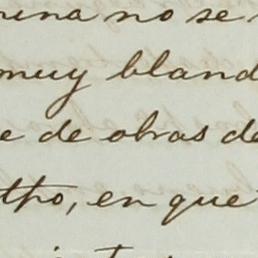 no se
muy bland
e de obras de
tpo, en que